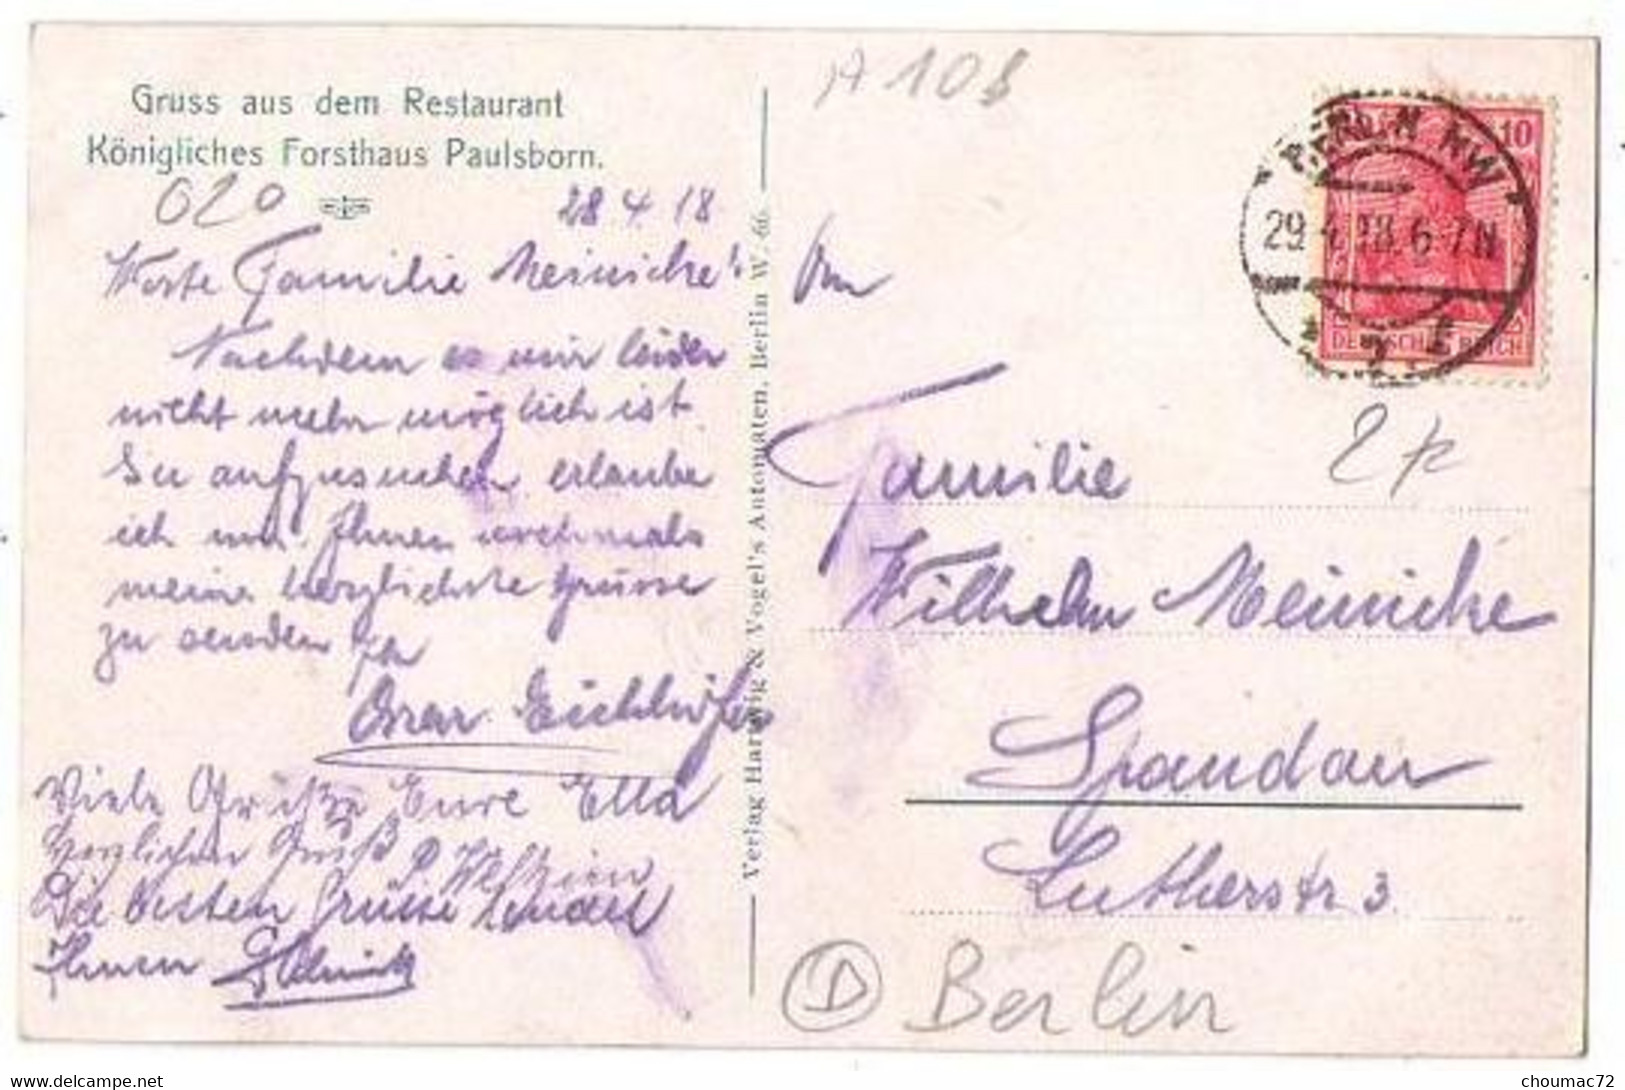 Gruss aus dem Restaurant
Königliches Forsthaus Paulsborn.
020
28 4. 18
Werte Familie Meinicke!
Nachdem es mir leider
nicht mehr möglich ist
Sie aufzusuchen erlaube
ich mir Ihnen nochmals
meine herzlichste Grüsse
zu senden
Oscar
Viele Grüße Eure Ella
Herzlichen Gruß
Die besten Grüsse sendet
Ihnen
Verlag Hartwig & Vogel's Automaten, Berlin W. 66.
A 108
BERLIN NW
29.4.18. 6-7N
10
DEUTSCHES REICH
An
Familie
Wilhelm Meinicke
Spandau
Lutherstr 3
D Berlin
delcampe.net
choumac72